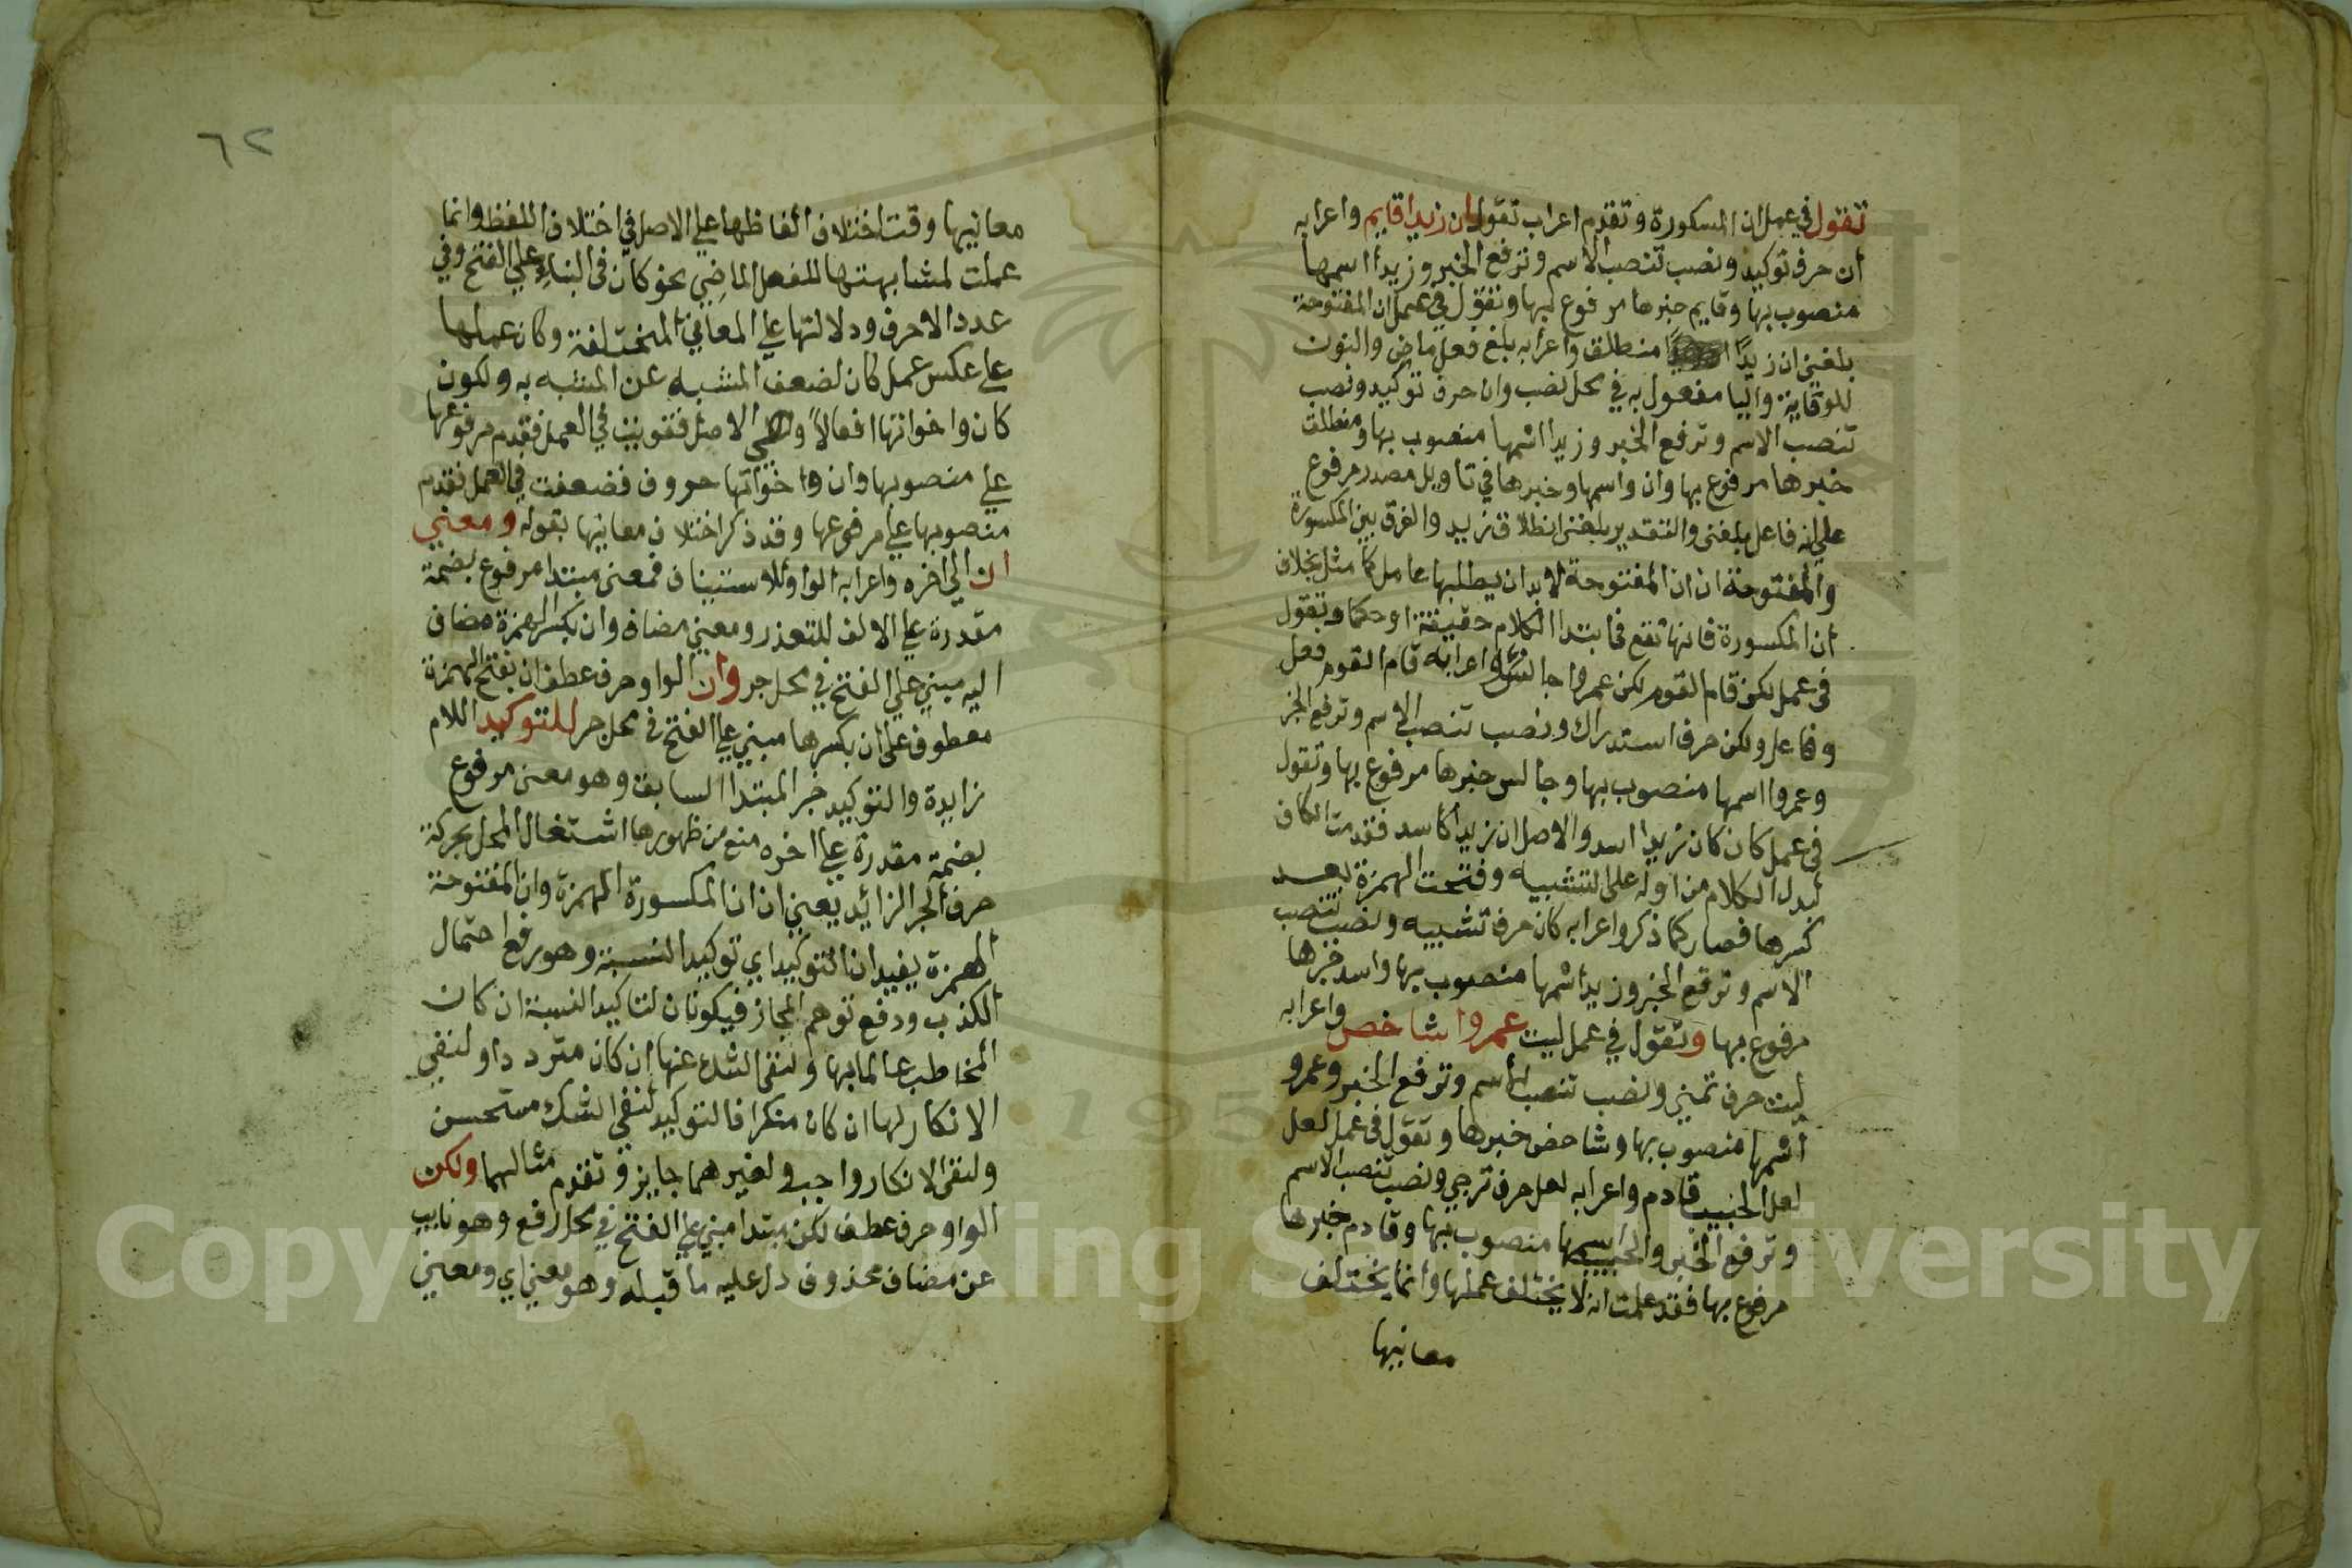 تقول في عمل ان المسكورة وتقدم اعراب تقول ان زيدا قايم واعرابه
ان حرف توكيد ونصب تنصب الاسم وترفع الخبر وزيدا اسمها
منصوب بها وقايم خبرها مرفوع بها وتقول في عمل ان المفتوحة
بلغني ان زيدًا منطلق واعرابه بلغ فعل ماض والنون
للوقاية واليا مفعول به في محل نصب وان حرف توكيد ونصب
تنصب الاسم وترفع الخبر وزيدا اسمها منصوب بها ومنطلق
خبرها مرفوع بها وان واسمها وخبرها في تاويل مصدر مرفوع
على انه فاعل بلغني والتقدير بلغني انطلاق زيد والفرق بين المكسورة
والمفتوحة ان ان المفتوحة لابد ان يطلبها عامل كما مثل بخلاف
ان المكسورة فانها تقع في ابتدا الكلام حقيقة او حكما وتقول
في عمل لكن قام القوم لكن عمروا جالس واعرابه قام القوم فعل
وفاعل ولكن حرف استدراك ونصب تنصب الاسم وترفع الخبر
وعمروا اسمها منصوب بها وجالس خبرها مرفوع بها وتقول
في عمل كان كان زيدا اسد والاصل ان زيدا كاسد فقدمت الكاف
ليدل الكلام من اوله على التشبيه وفتحت الهمزة بعد
كسرها فصار كما ذكر واعرابه كان حرف تشبيه ونصب تنصب
الاسم وترفع الخبر وزيدا اسمها منصوب بها واسد خبرها
مرفوع بها وتقول في عمل ليت عمروا شاخص واعرابه
ليت حرف تمني ونصب تنصب الاسم وترفع الخبر وعمرو
اسمها منصوب بها وشاخص خبرها وتقول في عمل لعل
لعل الحبيب قادم واعرابه لعل حرف ترجي ونصب تنصب الاسم
وترفع الخبر والحبيب اسمها منصوب بها وقادم خبرها
مرفوع بها فقد علمت انه لا يختلف عملها وانما يختلف
معانيها
٦٢
معانيها وقت اختلاف الفاظها على الاصل في اختلاف اللفظ وانما
عملت لمشابهتها للفعل الماضي نحو كان في البناء على الفتح وفي
عدد الاحرف ودلالتها على المعاني المختلفة وكان عملها
على عكس عمل كان لضعف المشبه عن المشبه به ولكون
كان واخواتها افعالاً وهي الاصل فقويت في العمل فقدم مرفوعها
على منصوبها وان واخواتها حروف فضعفت في العمل فقدم
منصوبها على مرفوعها وقد ذكر اختلاف معانيها بقوله ومعنى
ان الى اخره واعرابه الواو للاستيناف فمعنى مبتدا مرفوع بضمة
مقدرة على الالف للتعذر ومعنى مضاف وان بكسر الهمزة مضاف
اليه مبني على الفتح في محل جر وان الواو حرف عطف ان بفتح الهمزة
معطوف على ان بكسرها مبني على الفتح في محل جر للتوكيد اللام
زايدة والتوكيد خبر المبتدا السابق وهو معنى مرفوع
بضمة مقدرة على اخره منع من ظهورها اشتغال المحل بحركة
حرف الجر الزائد يعني ان ان المكسورة الهمزة وان المفتوحة
الهمزة يفيدان التوكيد اي توكيد النسبة وهو رفع احتمال
الكذب ودفع توهم المجاز فيكونان لتاكيد النسبة ان كان
المخاطب عالما بها ولنفي الشك عنها ان كان مترددا ولنفي
الانكار لها ان كان منكرا فالتوكيد لنفي الشك مستحسن
ولنفي الانكار واجب ولغيرهما جايز وتقدم مثالهما ولكن
الواو حرف عطف لكن مبتدا مبني على الفتح في محل رفع وهو نايب
عن مضاف محذوف دل عليه ما قبله وهو معنى اي ومعنى
Copyright © King Saud University